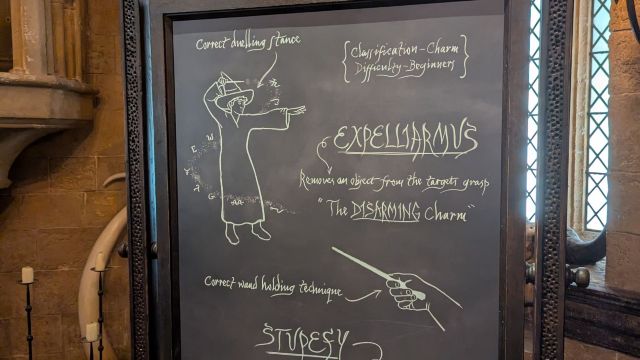 Correct duelling stance
{Classification - Charm
Difficulty - Beginners}
EXPELLIARMUS
Removes an object from the targets grasp
"The DISARMING Charm"
Correct wand holding technique
STUPEFY